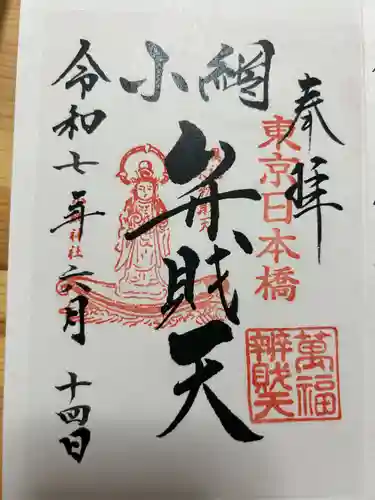 奉拝
東京日本橋
小網
弁財天
萬福
辨財天
神社
令和七年六月十四日